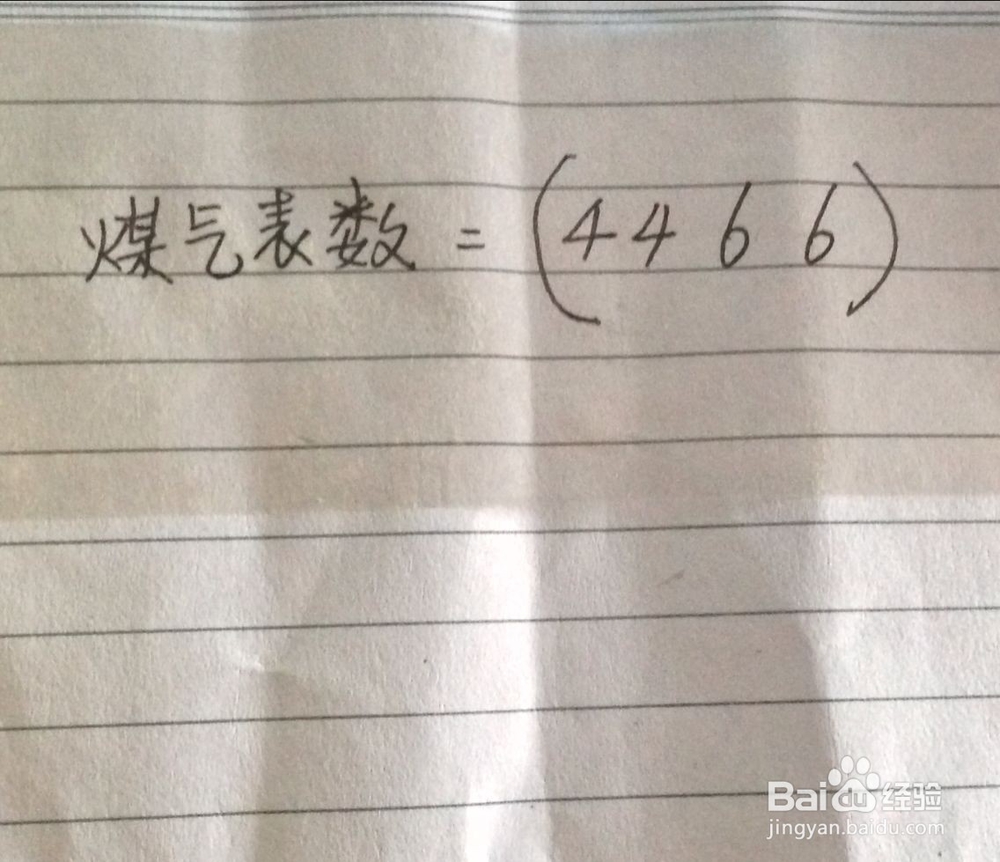 煤气表数 = (4 4 6 6)
Bai du 经验
jingyan.baidu.com